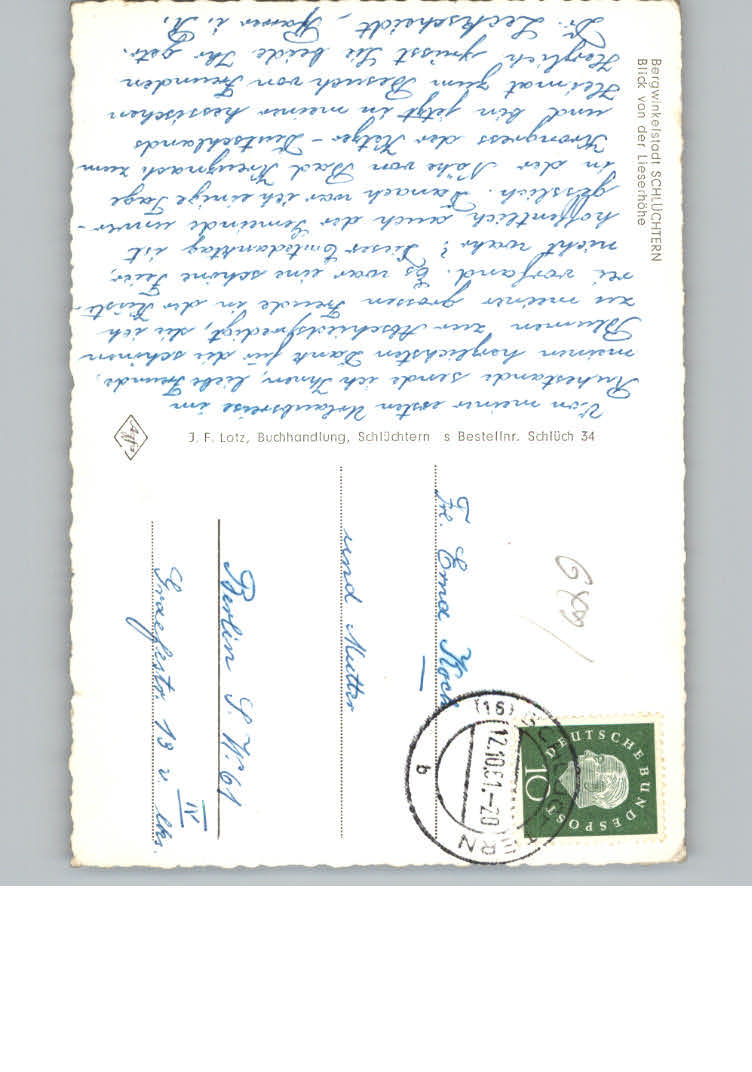 Bergwinkelstadt SCHLÜCHTERN
Blick von der Lieserhöhe
Von meiner ersten Urlaubsreise im
Ruhestande sende ich Ihnen, liebe Freunde,
meinen herzlichsten Dank für die schönen
Blumen zur Abschiedspredigt, die ich
zu meiner grossen Freude in der Küste-
rei vorfand. Es war eine schöne Feier,
nicht wahr? Dieser Erntedanktag ist
hoffentlich auch der Gemeinde unver-
gesslich. Danach war ich einige Tage
in der Nähe von Bad Kreuznach zum
Kongress der Ketzer-Deutschlands
und bin jetzt in meiner hessischen
Heimat zum Besuch von Freunden
Herzlich grüsst Sie beide Ihr getr.
Dr. Leckscheidt, Pfarrer i. R.
Agfa
J. F. Lotz, Buchhandlung, Schlüchtern s Bestellnr. Schlüch 34
Frl. Erna Koch
und Mutter
Berlin S.W. 61
Graefestr. 13 v. IV lks.
DEUTSCHE BUNDESPOST
10
(16) SCHLÜCHTERN
12.10.61.-20
b